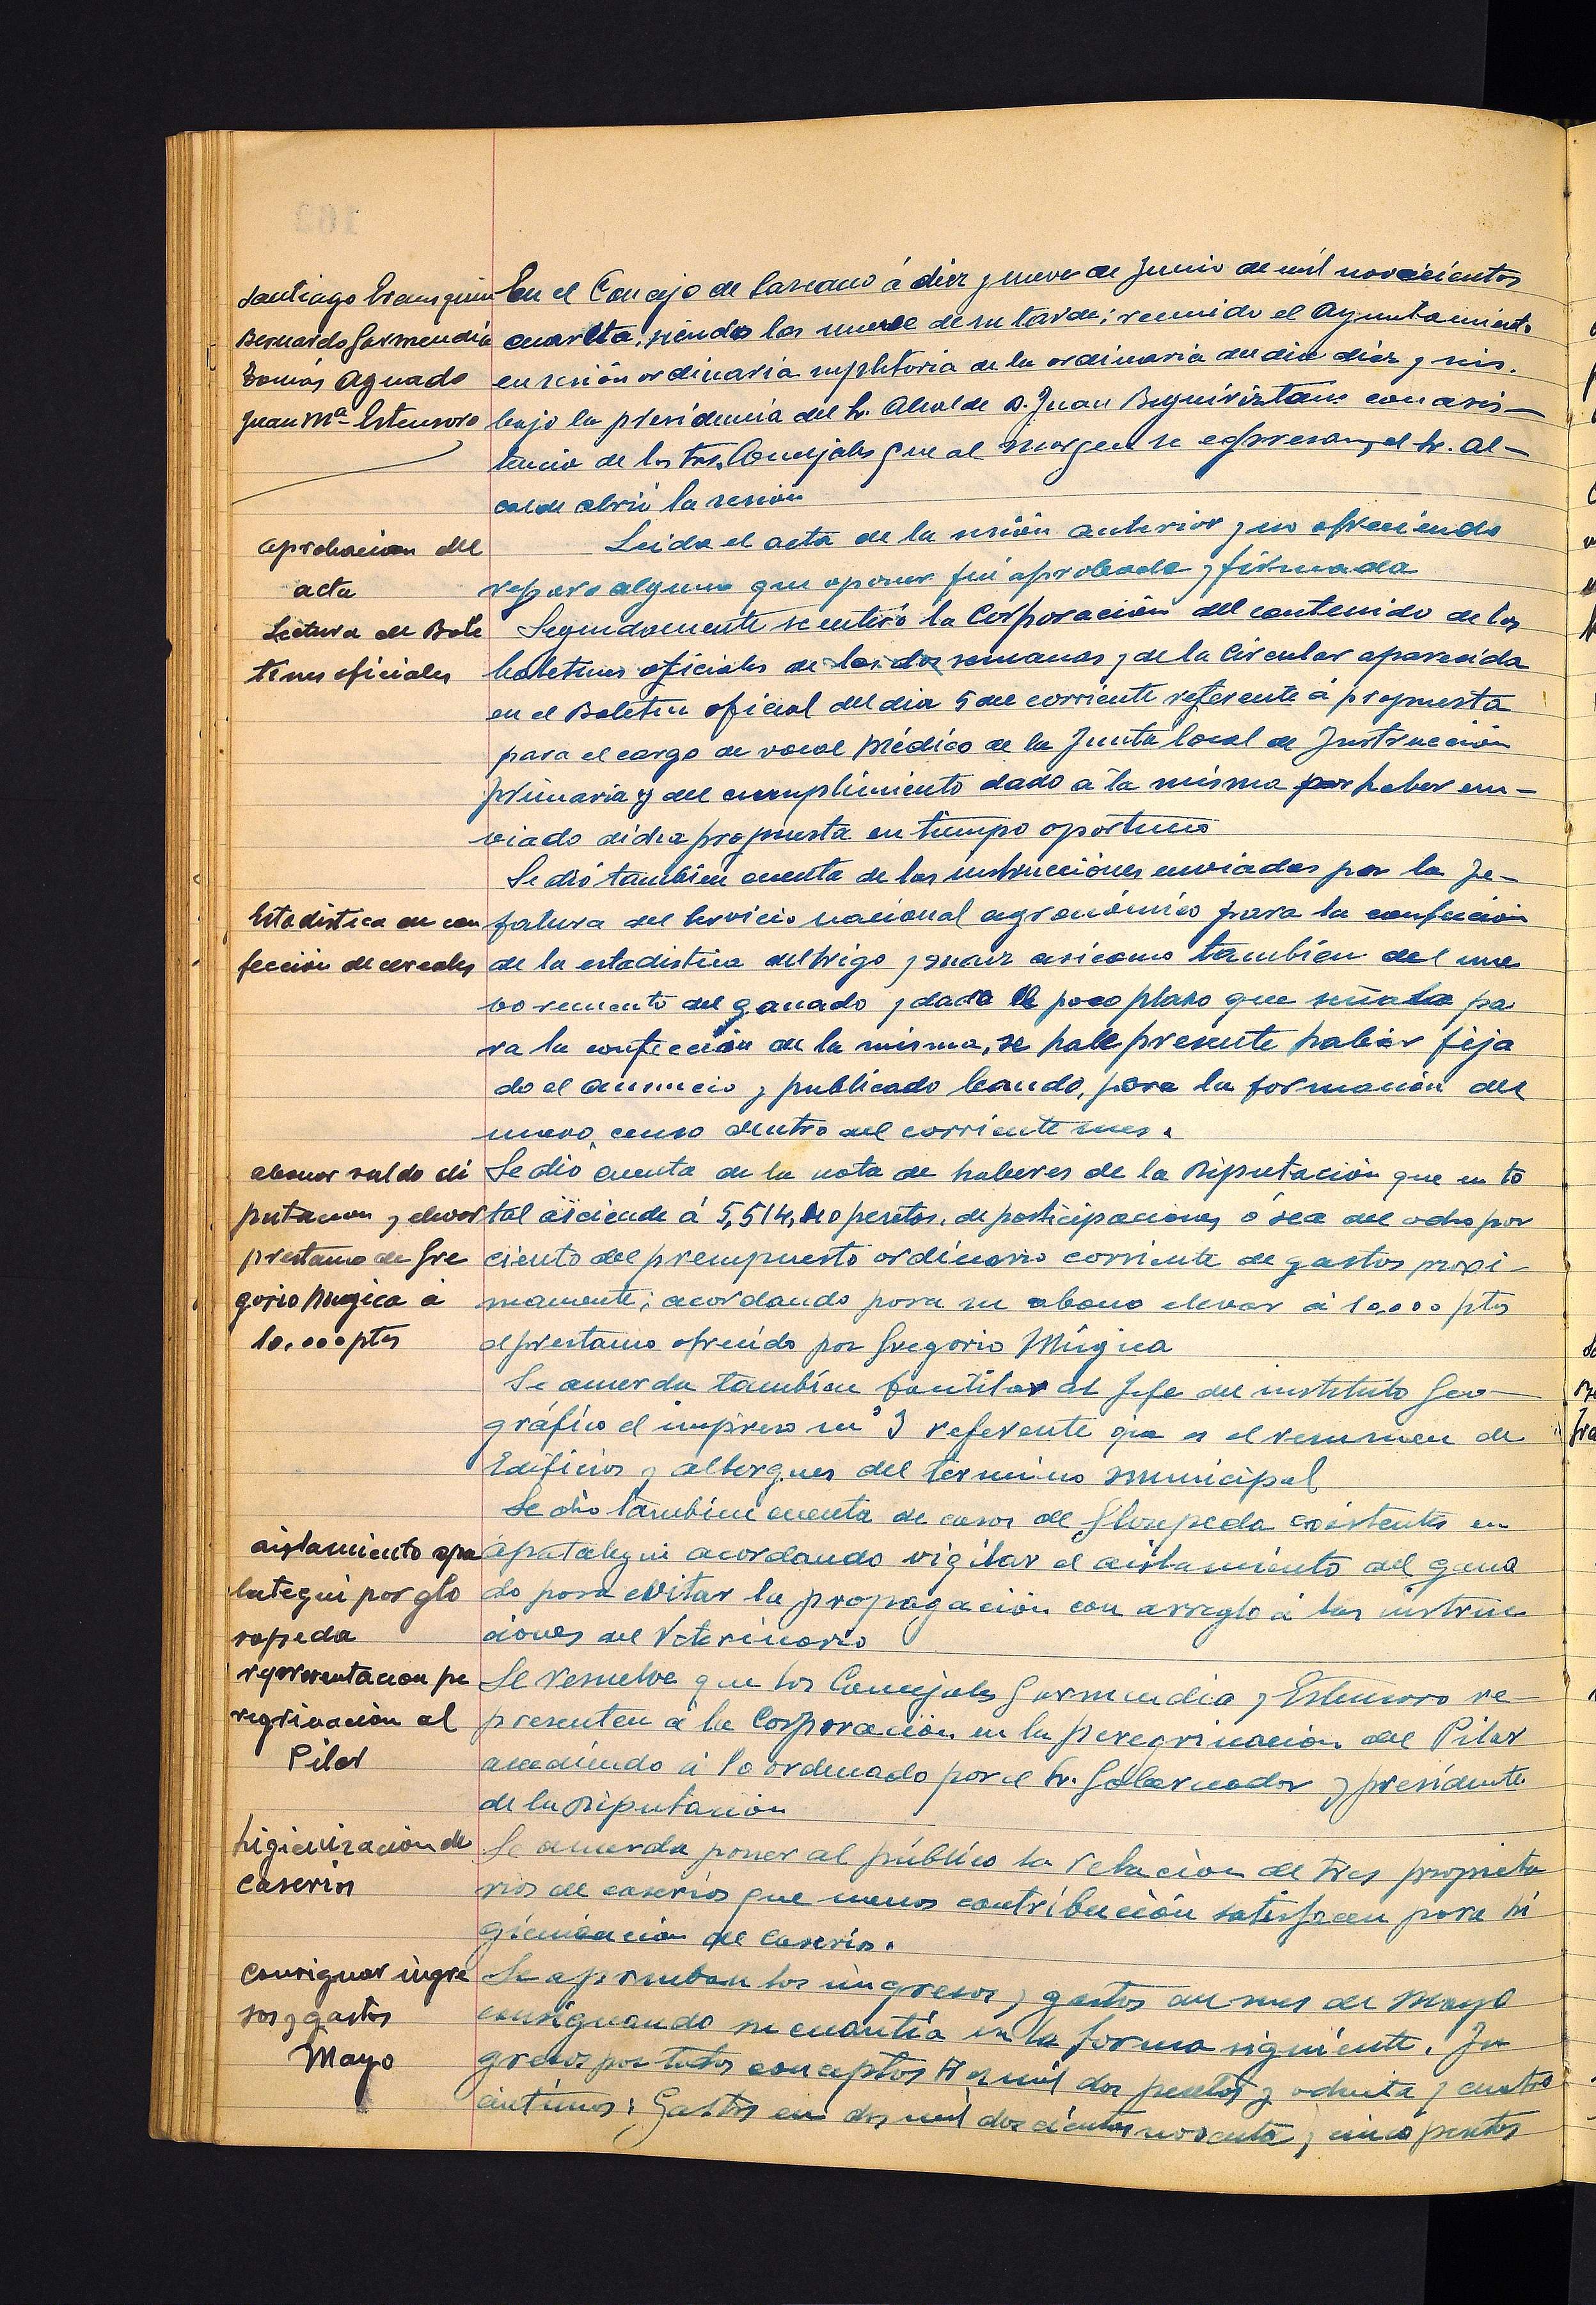 Santiago
Bernardo Garmendia
Tomás Aguado
Juan Mª Estensoro
En el Concejo de Lazcano á diez y nueve de Junio de mil novecientos
cuareta, siendo las nueve de su tarde; reunido el Ayuntamiento
en sesión ordinaria supletoria de la ordinaria del dia diez y seis.
bajo la presidencia del Sr. Alcalde D. Juan Beguiristain con asis-
tencia de los Sres. Concejales que al margen se espresan, el Sr. Al-
calde abrió la sesión
aprobacion del
acta
Leida el acta de la sesión anterior y no ofreciendo
reparo alguno que oponer fué aprobada y firmada
Lectura de Bole
tines oficiales
Seguidamente se enteró la Corporación del contenido de los
boletines oficiales de las dos semanas y de la Circular aparecida
en el Boletin oficial del dia 5 del corriente referente á propuesta
para el cargo de vocal Médico de la Junta local de Instrucción
primaria y del cumplimiento dado a la misma por haber en-
viado dicha propuesta en tiempo oportuno
Se dió tambien cuenta de las instrucciones enviadas por la Je-
Estadistica de con
fección de cereales
fatura del Servicio nacional agronómico para la confección
de la estadistica del trigo y maiz asicomo tambien del nue
vo recuento del ganado y dada el poco plazo que señala pa
ra la confección de la misma, se hace presente haber fija
do el anuncio y publicado bando, para la formación del
nuevo censo dentro del corriente mes.
abonar saldo di
putacion y elevar
prestamo de Gre
gorio Mugica á
10.000 ptas
Se dió cuenta de la nota de haberes de la Diputación que en to
tal asciende á 5,514, pesetas. de participaciones ó sea del ocho por
ciento del presupuesto ordinario corriente de gastos proxi-
mamente; acordando para su abono elevar á 10.000 ptas
el prestamo ofrecido por Gregorio Múgica
Se acuerda tambien al Jefe del instituto Geo-
gráfico el impreso nº 3 referente que es el resumen de
Edificios y albergues del termino municipal
Se dió tambien cuenta de casos de Glosopeda existentes en
aislamiento apa
lategui por glo
sopeda
apatalegui acordando vigilar el aislamiento del gana
do para evitar la propagación con arreglo á las instruc
ciones del Veterinario
representacion pe
regrinación al
Pilar
Se resuelve que los Concejales Garmendia y Estensoro re-
presenten á la Corporación en la peregrinación del Pilar
accediendo á lo ordenado por el Sr. Gobernador y presidente
de la Diputación
higienización de
caserios
Se acuerda poner al público la relacion de tres propieta
rios de caserios que menos contribución satisfacen para hi
gienización de caserios.
consignar ingre
sos y gastos
Mayo
Se aprueban los ingresos y gastos del mes de Mayo
consignando su cuantía en la forma siguiente. In
gresos por todos conceptos mil dos pesetas y ochenta y cuatro
centimos: Gastos en dos mil doscientas noventa y cinco pesetas